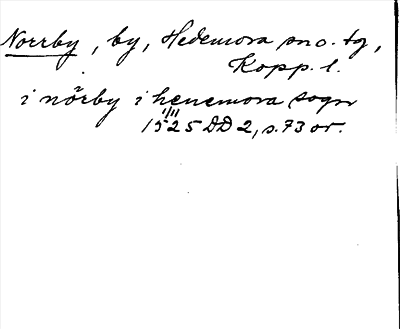 Norrby, by, Hedemora sn o. tg,
Kopp. l.
i nörby i henemora sogn
1/11
1525 DD 2, s. 73 or.